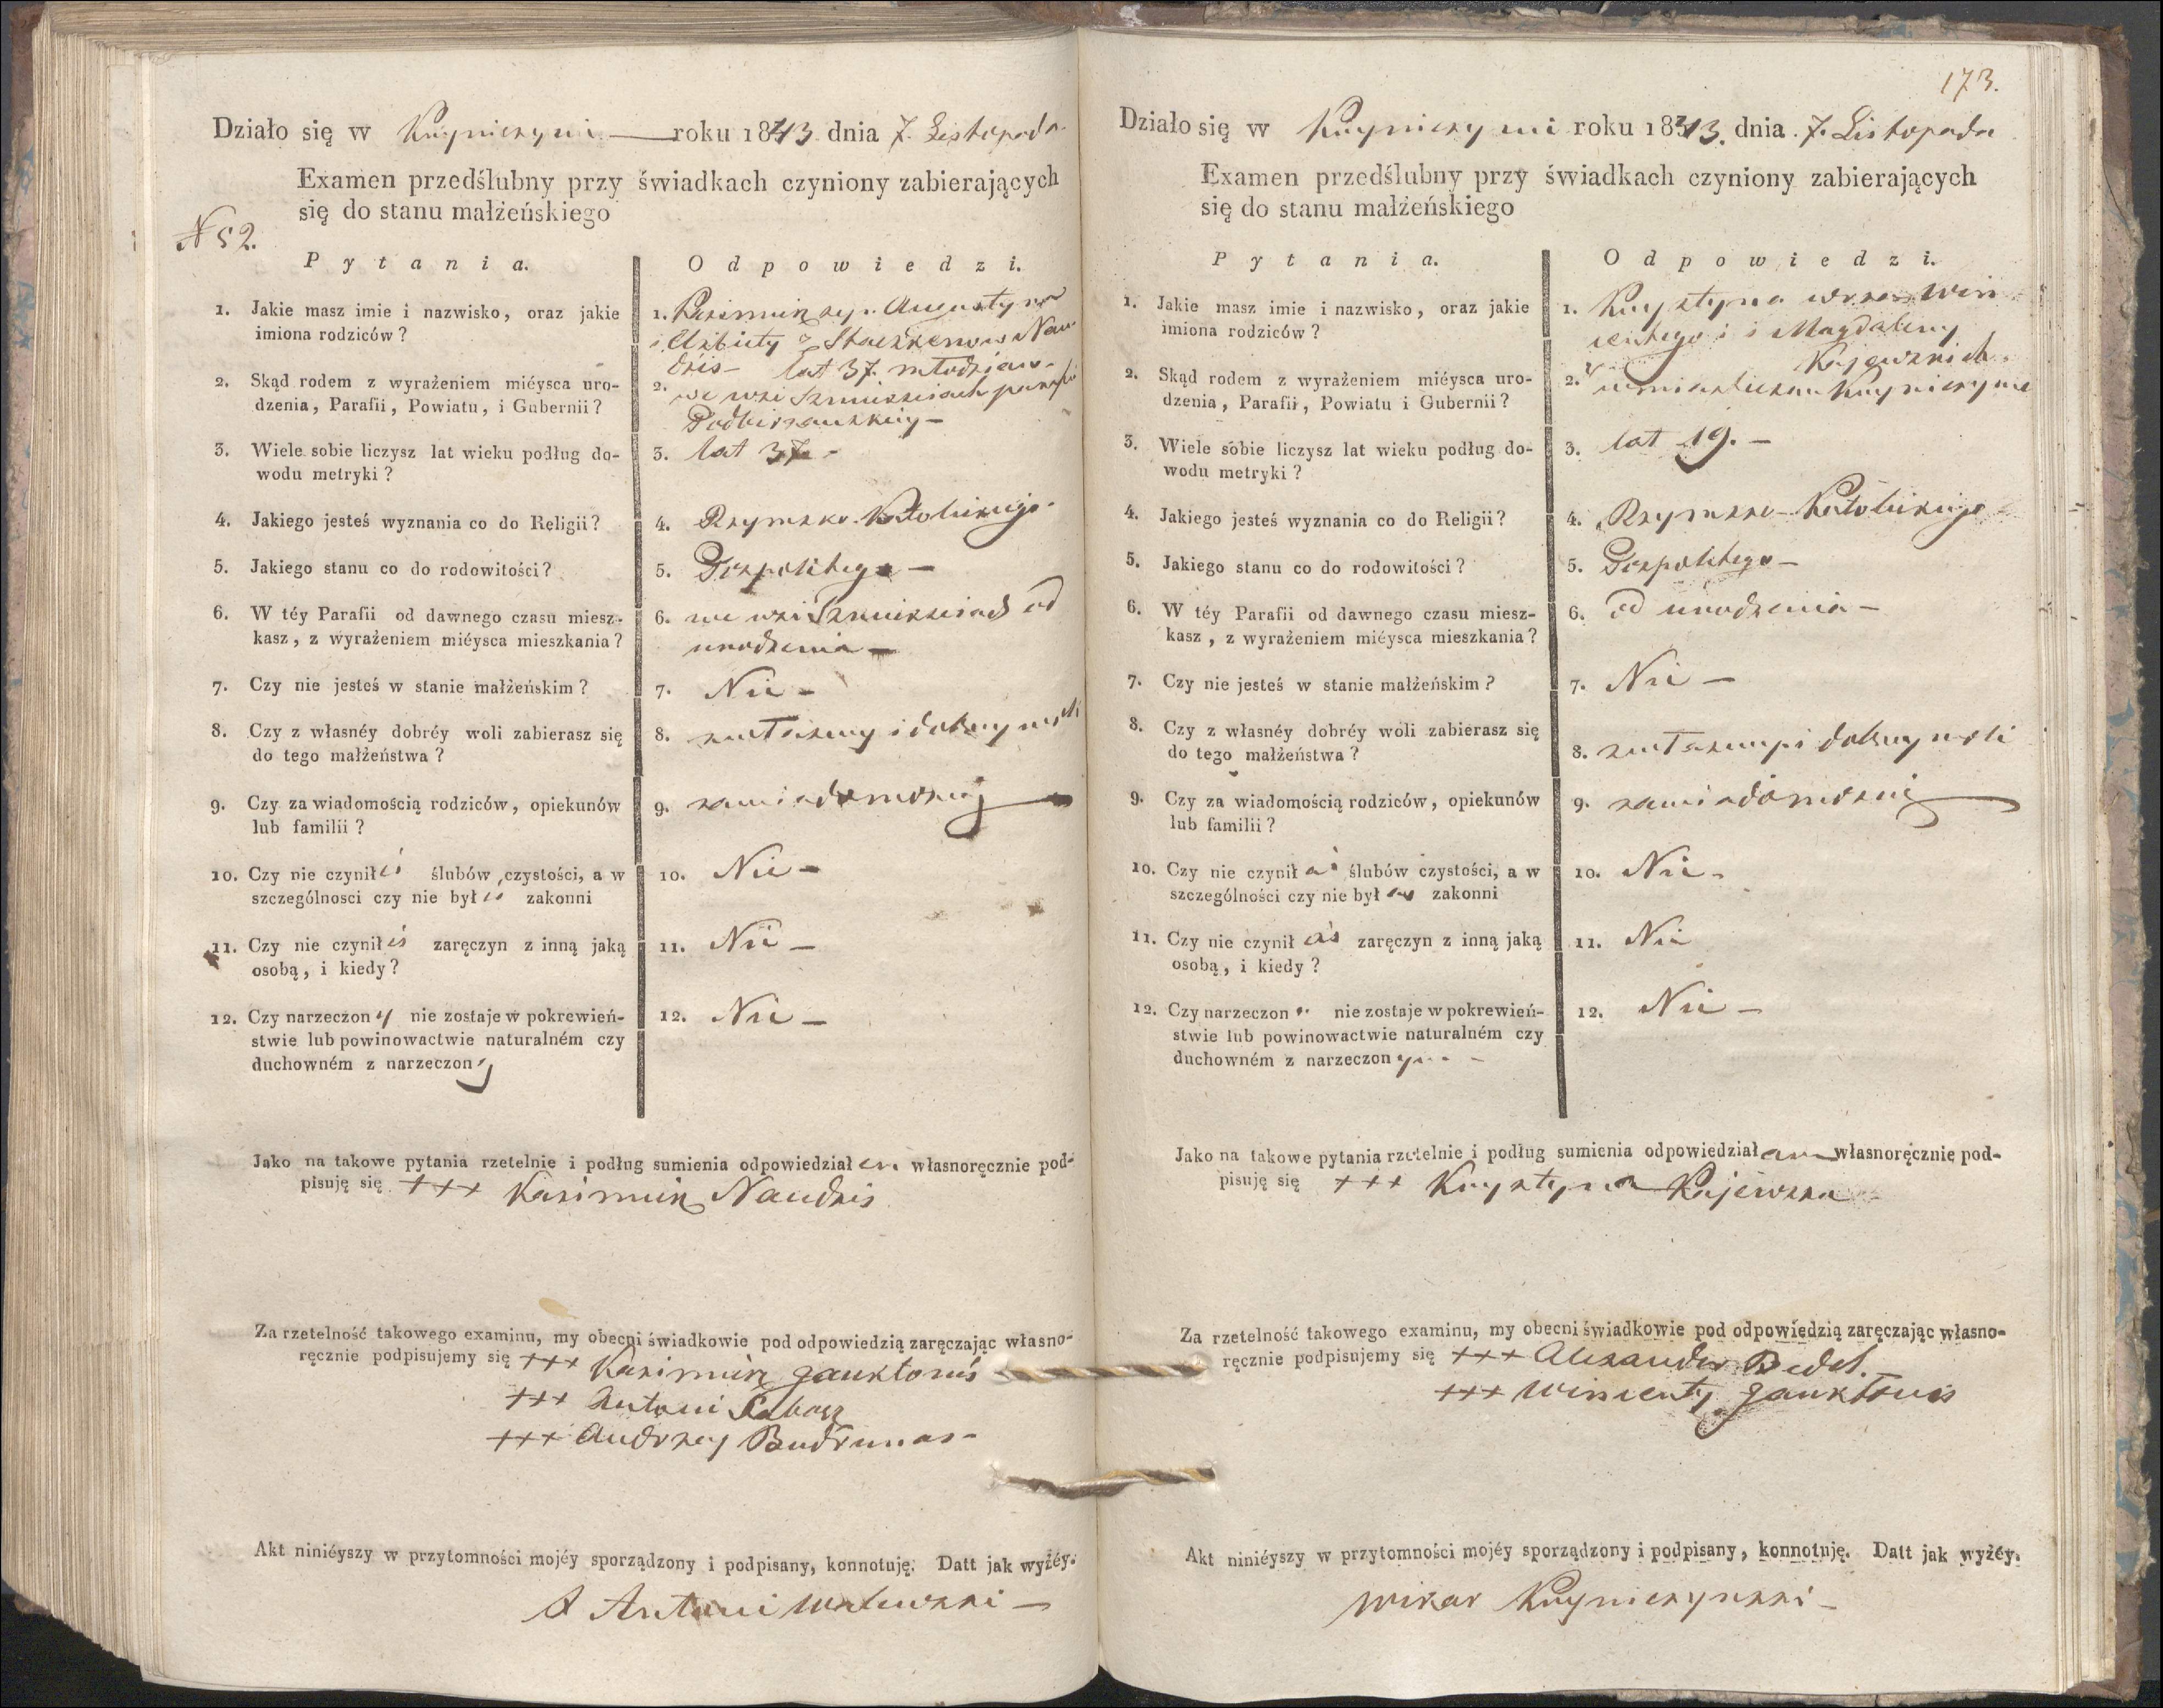 Działo się w Kryniczyni — roku 1843 dnia 7. Listopada
Examen przedślubny przy świadkach czyniony zabierających
się do stanu małżeńskiego
N 52.
Pytania.
Odpowiedzi.
1. Jakie masz imie i nazwisko, oraz jakie
imiona rodziców?
1. Kazimirz syn Augustyna
i Elżbiety z Nau-
dzis — lat 37. młodzian
2. Skąd rodem z wyrażeniem miéysca uro-
dzenia, Parafii, Powiatu, i Gubernii?
2. we wsi parafii
3. Wiele sobie liczysz lat wieku podług do-
wodu metryki?
3. lat 37 —
4. Jakiego jesteś wyznania co do Religii?
4. Rzymsko Katolickiego
5. Jakiego stanu co do rodowitości?
5. Pospolitego —
6. W téy Parafii od dawnego czasu miesz-
kasz, z wyrażeniem miéysca mieszkania?
6. we wsi od
urodzenia —
7. Czy nie jesteś w stanie małżeńskim?
7. Nie —
8. Czy z własnéy dobréy woli zabierasz się
do tego małżeństwa?
8. z własney i dobrey woli
9. Czy za wiadomością rodziców, opiekunów
lub familii?
9. za wiadomością —
10. Czy nie czynił eś ślubów czystości, a w
szczególnosci czy nie był eś zakonni
10. Nie —
11. Czy nie czynił eś zaręczyn z inną jaką
osobą, i kiedy?
11. Nie —
12. Czy narzeczon y nie zostaje w pokrewień-
stwie lub powinowactwie naturalném czy
duchowném z narzeczon ą
12. Nie —
Jako na takowe pytania rzetelnie i podług sumienia odpowiedział em własnoręcznie pod-
pisuję się +++ Kazimirz Naudzis
Za rzetelność takowego examinu, my obecni świadkowie pod odpowiedzią zaręczając własno-
ręcznie podpisujemy się +++ Kazimirz
+++ Antoni
+++ Andrzey Budrunas —
Akt niniéyszy w przytomności mojéy sporządzony i podpisany, konnotuję. Datt jak wyżéy.
X Antoni
173.
Działo się w Kryniczyni roku 1843. dnia 7. Listopada
Examen przedślubny przy świadkach czyniony zabierających
się do stanu małżeńskiego
Pytania.
Odpowiedzi.
1. Jakie masz imie i nazwisko, oraz jakie
imiona rodziców?
1. Krystyna Win-
centego i Magdaleny
Kajewskich
2. Skąd rodem z wyrażeniem miéysca uro-
dzenia, Parafii, Powiatu i Gubernii?
2. w miasteczku
3. Wiele sobie liczysz lat wieku podług do-
wodu metryki?
3. lat 19. —
4. Jakiego jesteś wyznania co do Religii?
4. Rzymsko-Katolickiego
5. Jakiego stanu co do rodowitości?
5. Pospolitego —
6. W téy Parafii od dawnego czasu miesz-
kasz, z wyrażeniem miéysca mieszkania?
6. od urodzenia —
7. Czy nie jesteś w stanie małżeńskim?
7. Nie —
8. Czy z własnéy dobréy woli zabierasz się
do tego małżeństwa?
8. z własney i dobrey woli
9. Czy za wiadomością rodziców, opiekunów
lub familii?
9. za wiadomością
10. Czy nie czynił aś ślubów czystości, a w
szczególności czy nie był aś zakonni
10. Nie —
11. Czy nie czynił aś zaręczyn z inną jaką
osobą, i kiedy?
11. Nie
12. Czy narzeczon a nie zostaje w pokrewień-
stwie lub powinowactwie naturalném czy
duchowném z narzeczon ym —
12. Nie —
Jako na takowe pytania rzetelnie i podług sumienia odpowiedział am własnoręcznie pod-
pisuję się +++ Krystyna Kajewska
Za rzetelność takowego examinu, my obecni świadkowie pod odpowiedzią zaręczając własno-
ręcznie podpisujemy się +++ Alexander
+++ Wincenty
Akt niniéyszy w przytomności mojéy sporządzony i podpisany, konnotuję. Datt jak wyżéy.
Wikar